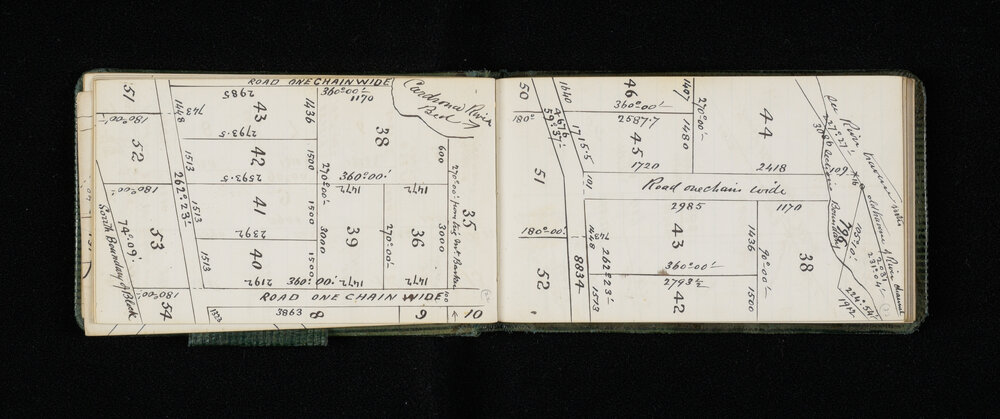 ROAD ONE CHAIN WIDE
51
180°00'
52
180°00'
53
74°09'
South Boundary of Block
180°00'
54
743
1448
1513
262°23'
1513
1513
2985
43
1436
2793.5
42
1500
2593.5
41
1500
2392
40
1500
2192
360°00'
1170
38
270°00'
360°00'
1472
1472
39
3000
270°00'
36
1472
1472
360°00'
Cardrona River
Bed
600
270°00'
35
3000
ROAD ONE CHAIN WIDE
100
3863
8
9
10
50
180°
51
180°00'
52
1640
467.6
59°37'
1715.5
101
46
360°00'
2587.7
45
1720
1407
270°00'
1480
44
2418
Road one chain wide
2985
1170
743
1448
262°23'
8834
1513
43
1436
360°00'
2793½
42
90°00'
1500
38
River
Boundary
796
109
224°54'
1912